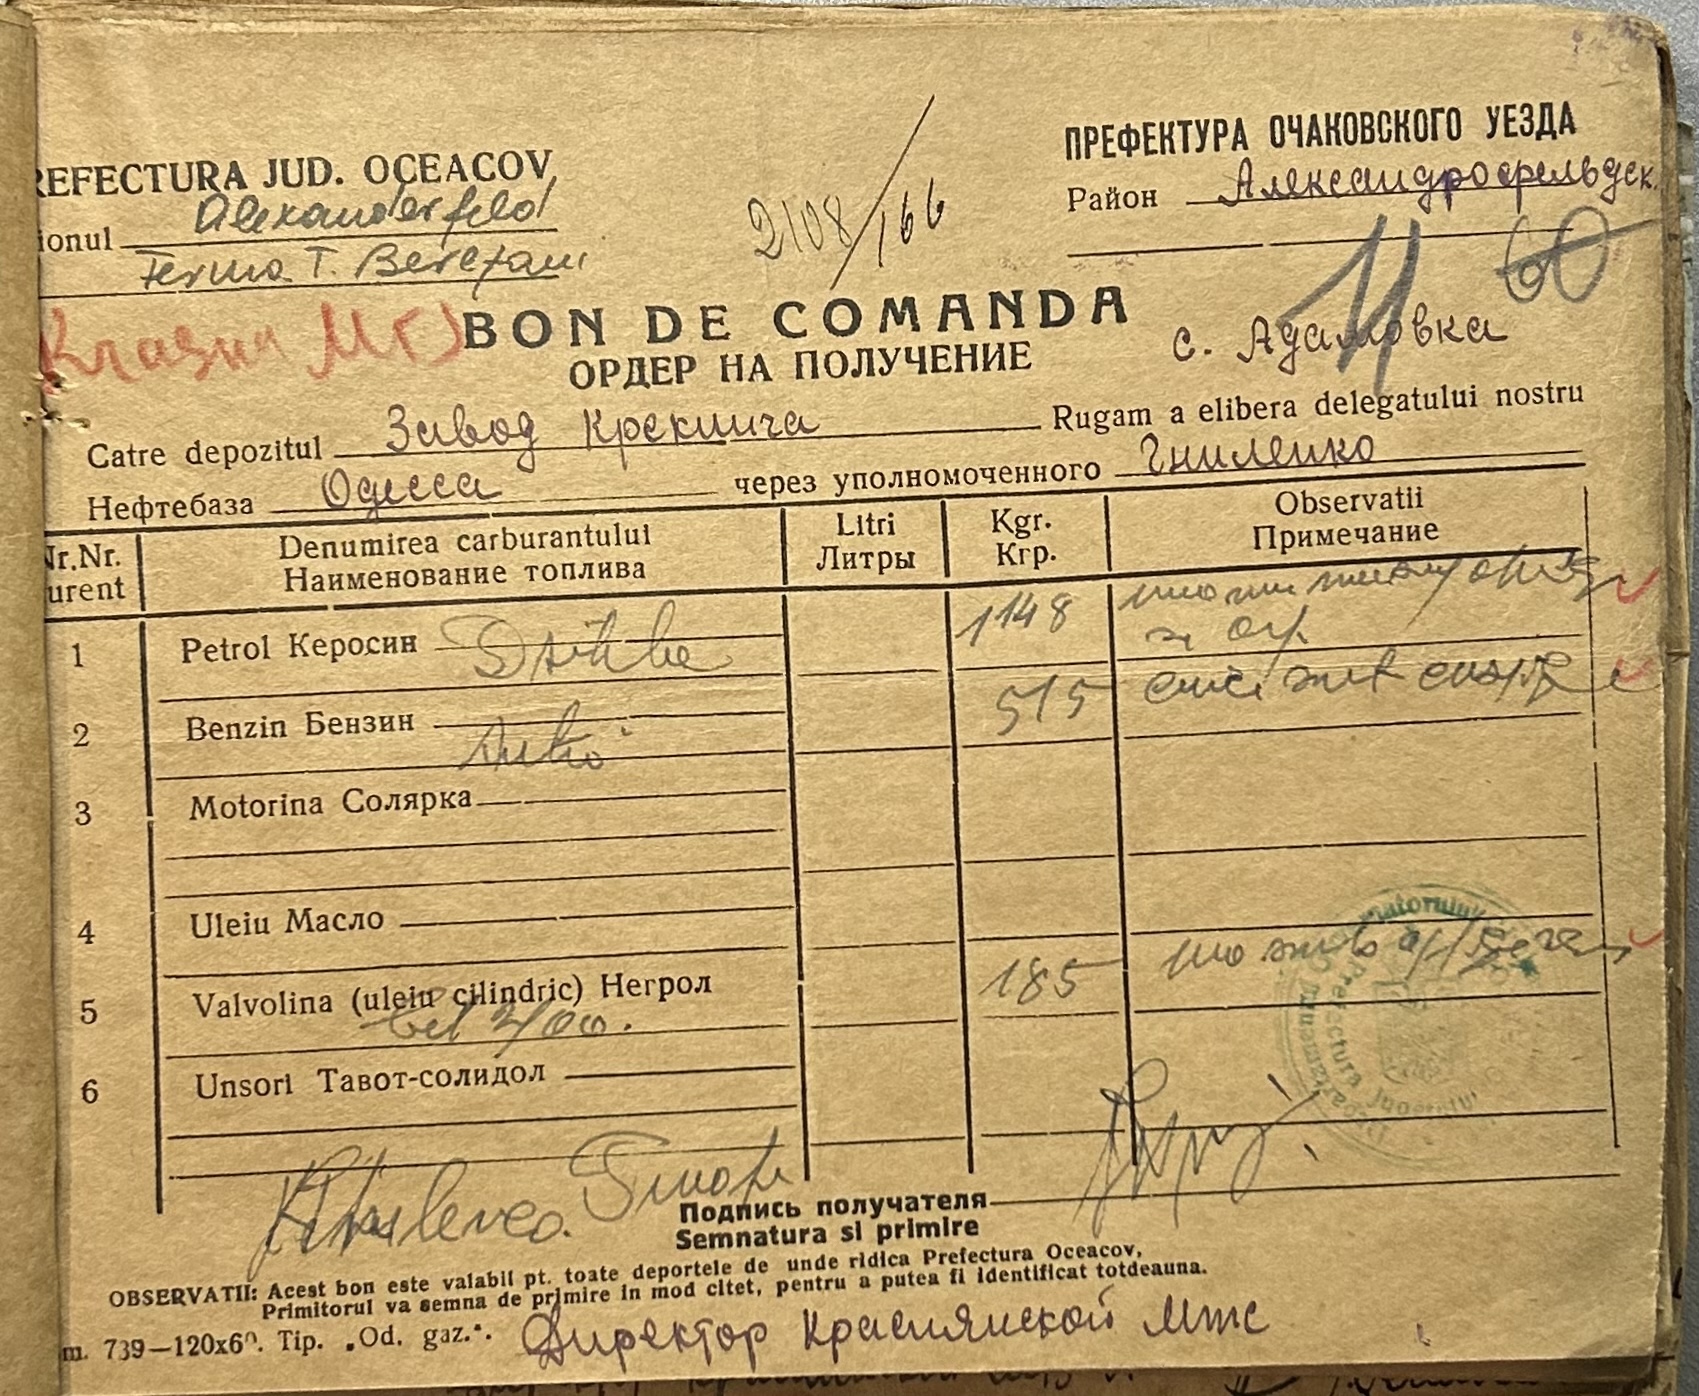 REFECTURA JUD. OCEACOV
ionul Alexanderfeld
Ferma T. Berezani
2108/166
ПРЕФЕКТУРА ОЧАКОВСКОГО УЕЗДА
Район Александрофельдск.
11 60
BON DE COMANDA
ОРДЕР НА ПОЛУЧЕНИЕ
с. Адамовка
Catre depozitul Завод Крекинга Rugam a elibera delegatului nostru
Нефтебаза Одесса через уполномоченного Гниленко
Nr.Nr. Denumirea carburantului Litri Kgr. Observatii
urent Наименование топлива Литры Кгр. Примечание
1 Petrol Керосин 1148
2 Benzin Бензин 515
3 Motorina Солярка
4 Uleiu Масло
5 Valvolina (uleiu cilindric) Негрол 185
6 Unsori Тавот-солидол
Подпись получателя
Semnatura si primire
OBSERVATII: Acest bon este valabil pt. toate deportele de unde ridica Prefectura Oceacov,
Primitorul va semna de primire in mod citet, pentru a putea fi identificat totdeauna.
m. 739—120x60. Tip. „Od. gaz.“.
Директор Краснянской мтс